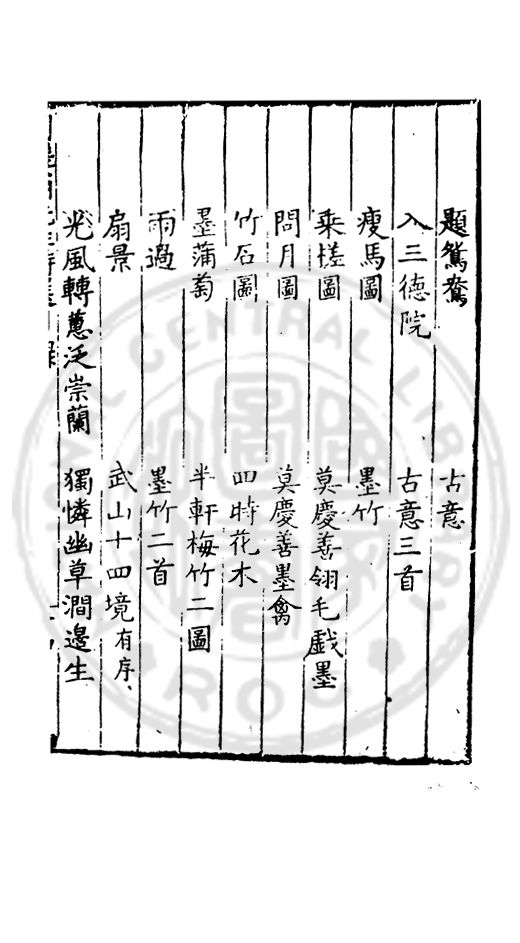 題鴛鴦 古意
入三德院 古意三首
瘦馬圖 墨竹
乘槎圖 莫慶善翎毛戱墨
問月圖 莫慶善墨禽
竹石圖 四時花木
墨蒲萄 半軒梅竹二圖
雨過 墨竹二首
扇景 武山十四境有序
光風轉蕙泛崇蘭 獨憐幽草澗邊生
NATIONAL CENTRAL LIBRARY
ROC